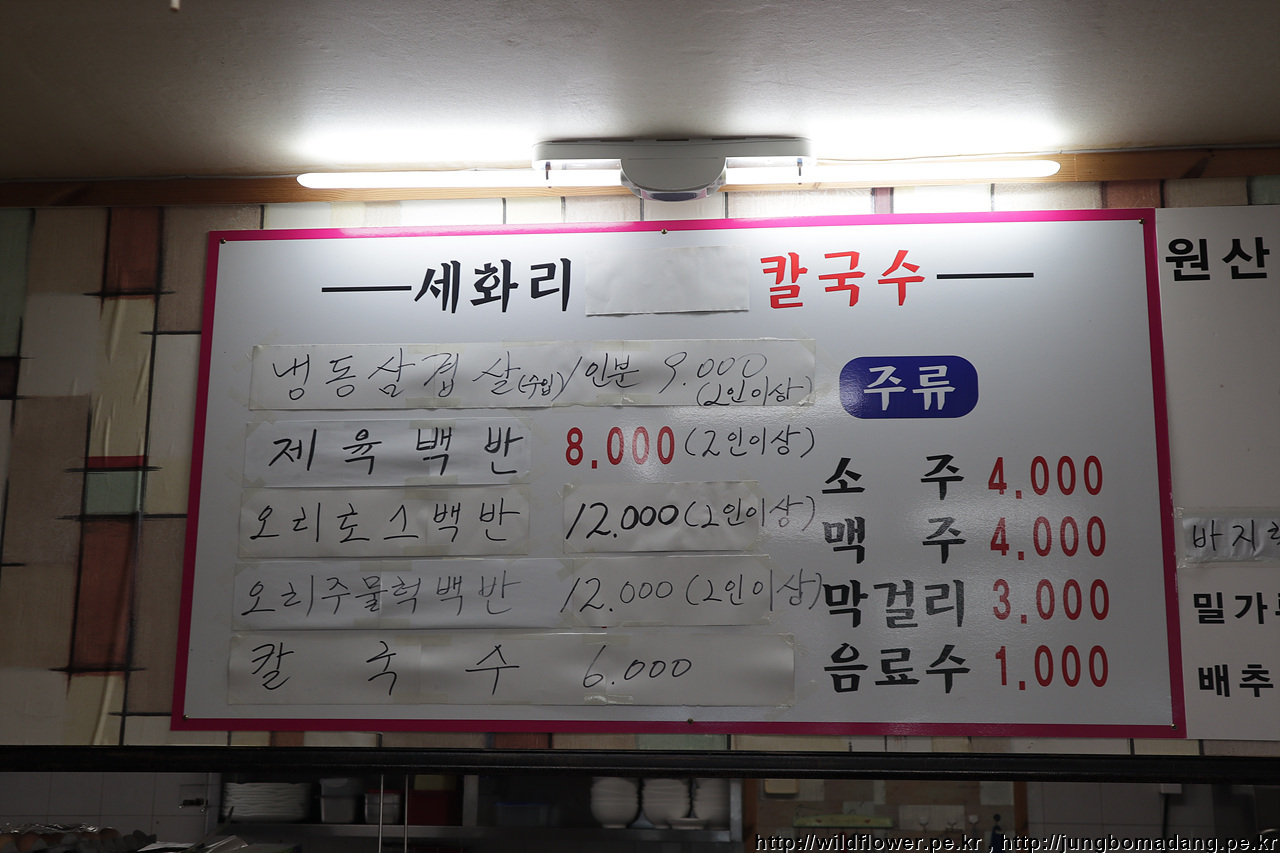 세화리 칼국수
냉동삼겹살(수입)/인분 9.000
(2인이상)
제육백반 8.000 (2인이상)
오리로스백반 12.000 (2인이상)
오리주물럭백반 12.000 (2인이상)
칼국수 6.000
주류
소주 4.000
맥주 4.000
막걸리 3.000
음료수 1.000
원산
바지
밀가
배추
http://wildflower.pe.kr , http://jungbomadang.pe.kr